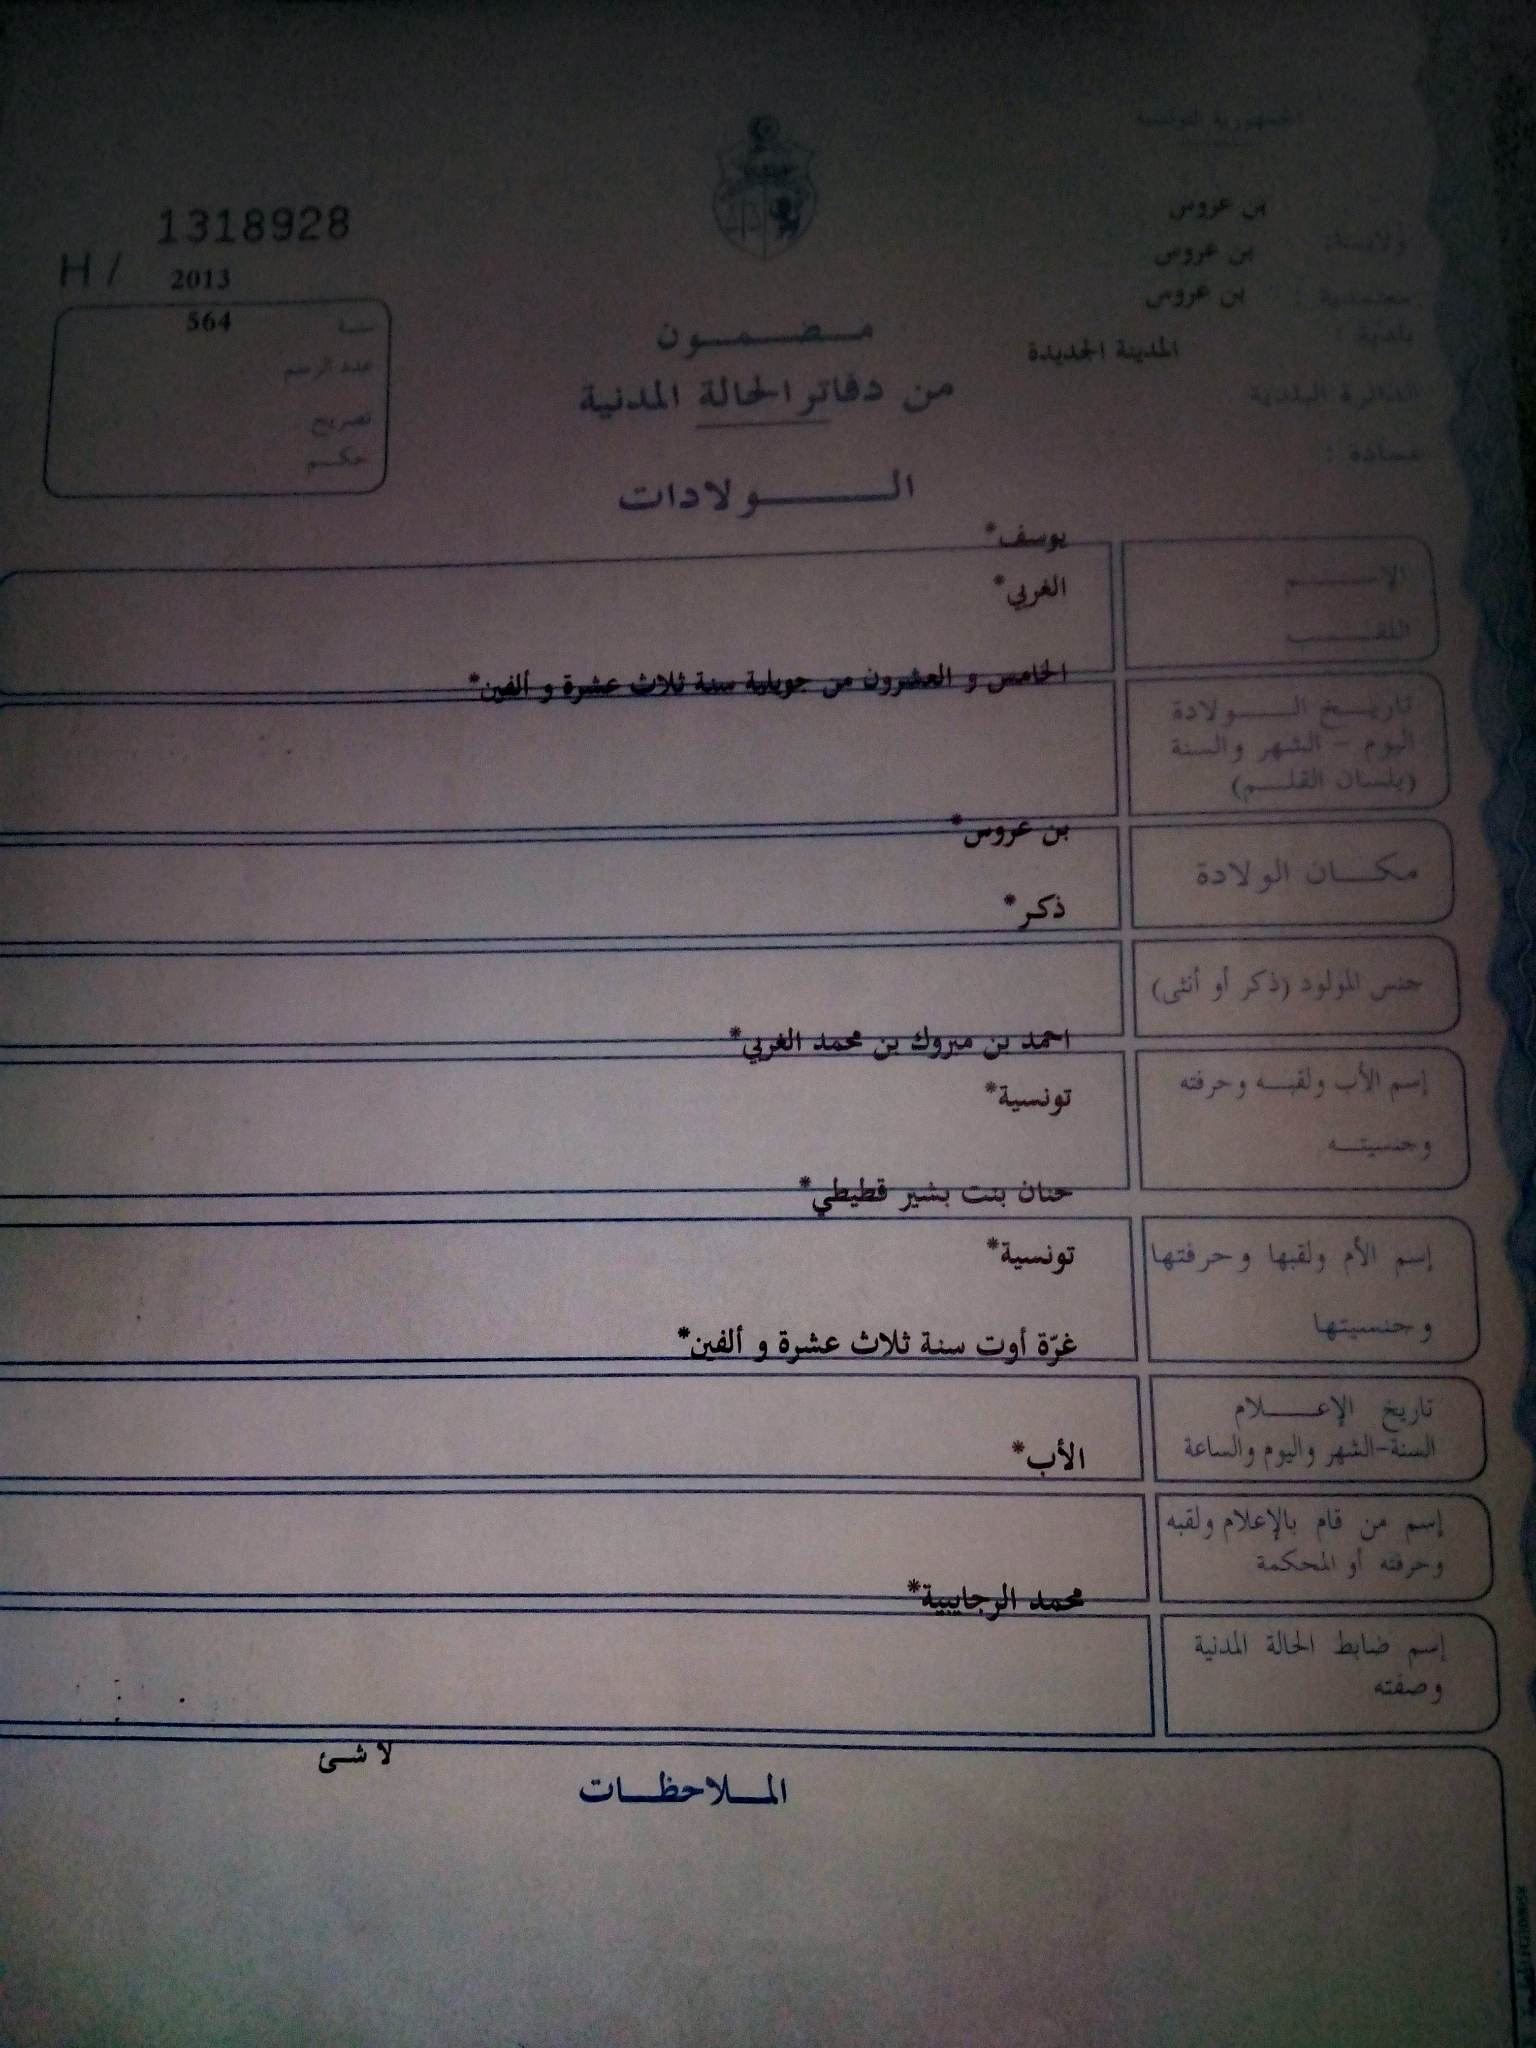 الجمهورية التونسية
بن عروس
ولايــة :
بن عروس
معتمدية :
بن عروس
بلدية :
المدينة الجديدة
الدائرة البلدية
عمادة :
1318928
H /
2013
سنة
564
عدد الرسم
تصريح
حكــم
مــضــمــون
من دفاتر الحالة المدنية
الــولادات
يوسف*
الإســـم
الغربي*
اللقـــب
الخامس و العشرون من جويلية سنة ثلاث عشرة و ألفين*
تاريــخ الـــولادة
اليوم - الشهر والسنة
(بلسان القلــم)
بن عروس*
مكـــان الولادة
ذكر*
جنس المولود (ذكر أو أنثى)
احمد بن مبروك بن محمد الغربي*
إسم الأب ولقبــه وحرفته
تونسية*
وجنسيتــه
حنان بنت بشير قطيطي*
إسم الأم ولقبها وحرفتها
تونسية*
وجنسيتها
غرّة أوت سنة ثلاث عشرة و ألفين*
تاريخ الإعـــلام
السنة-الشهر واليوم والساعة
الأب*
إسم من قام بالإعلام ولقبه
وحرفته أو المحكمة
محمد الرجايبية*
إسم ضابط الحالة المدنية
وصفته
لا شئ
المــلاحظــات